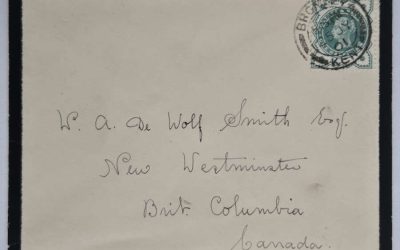 BRO
01
KENT
W. A. De Wolf Smith Esq.
New Westminster
Brit. Columbia
Canada.